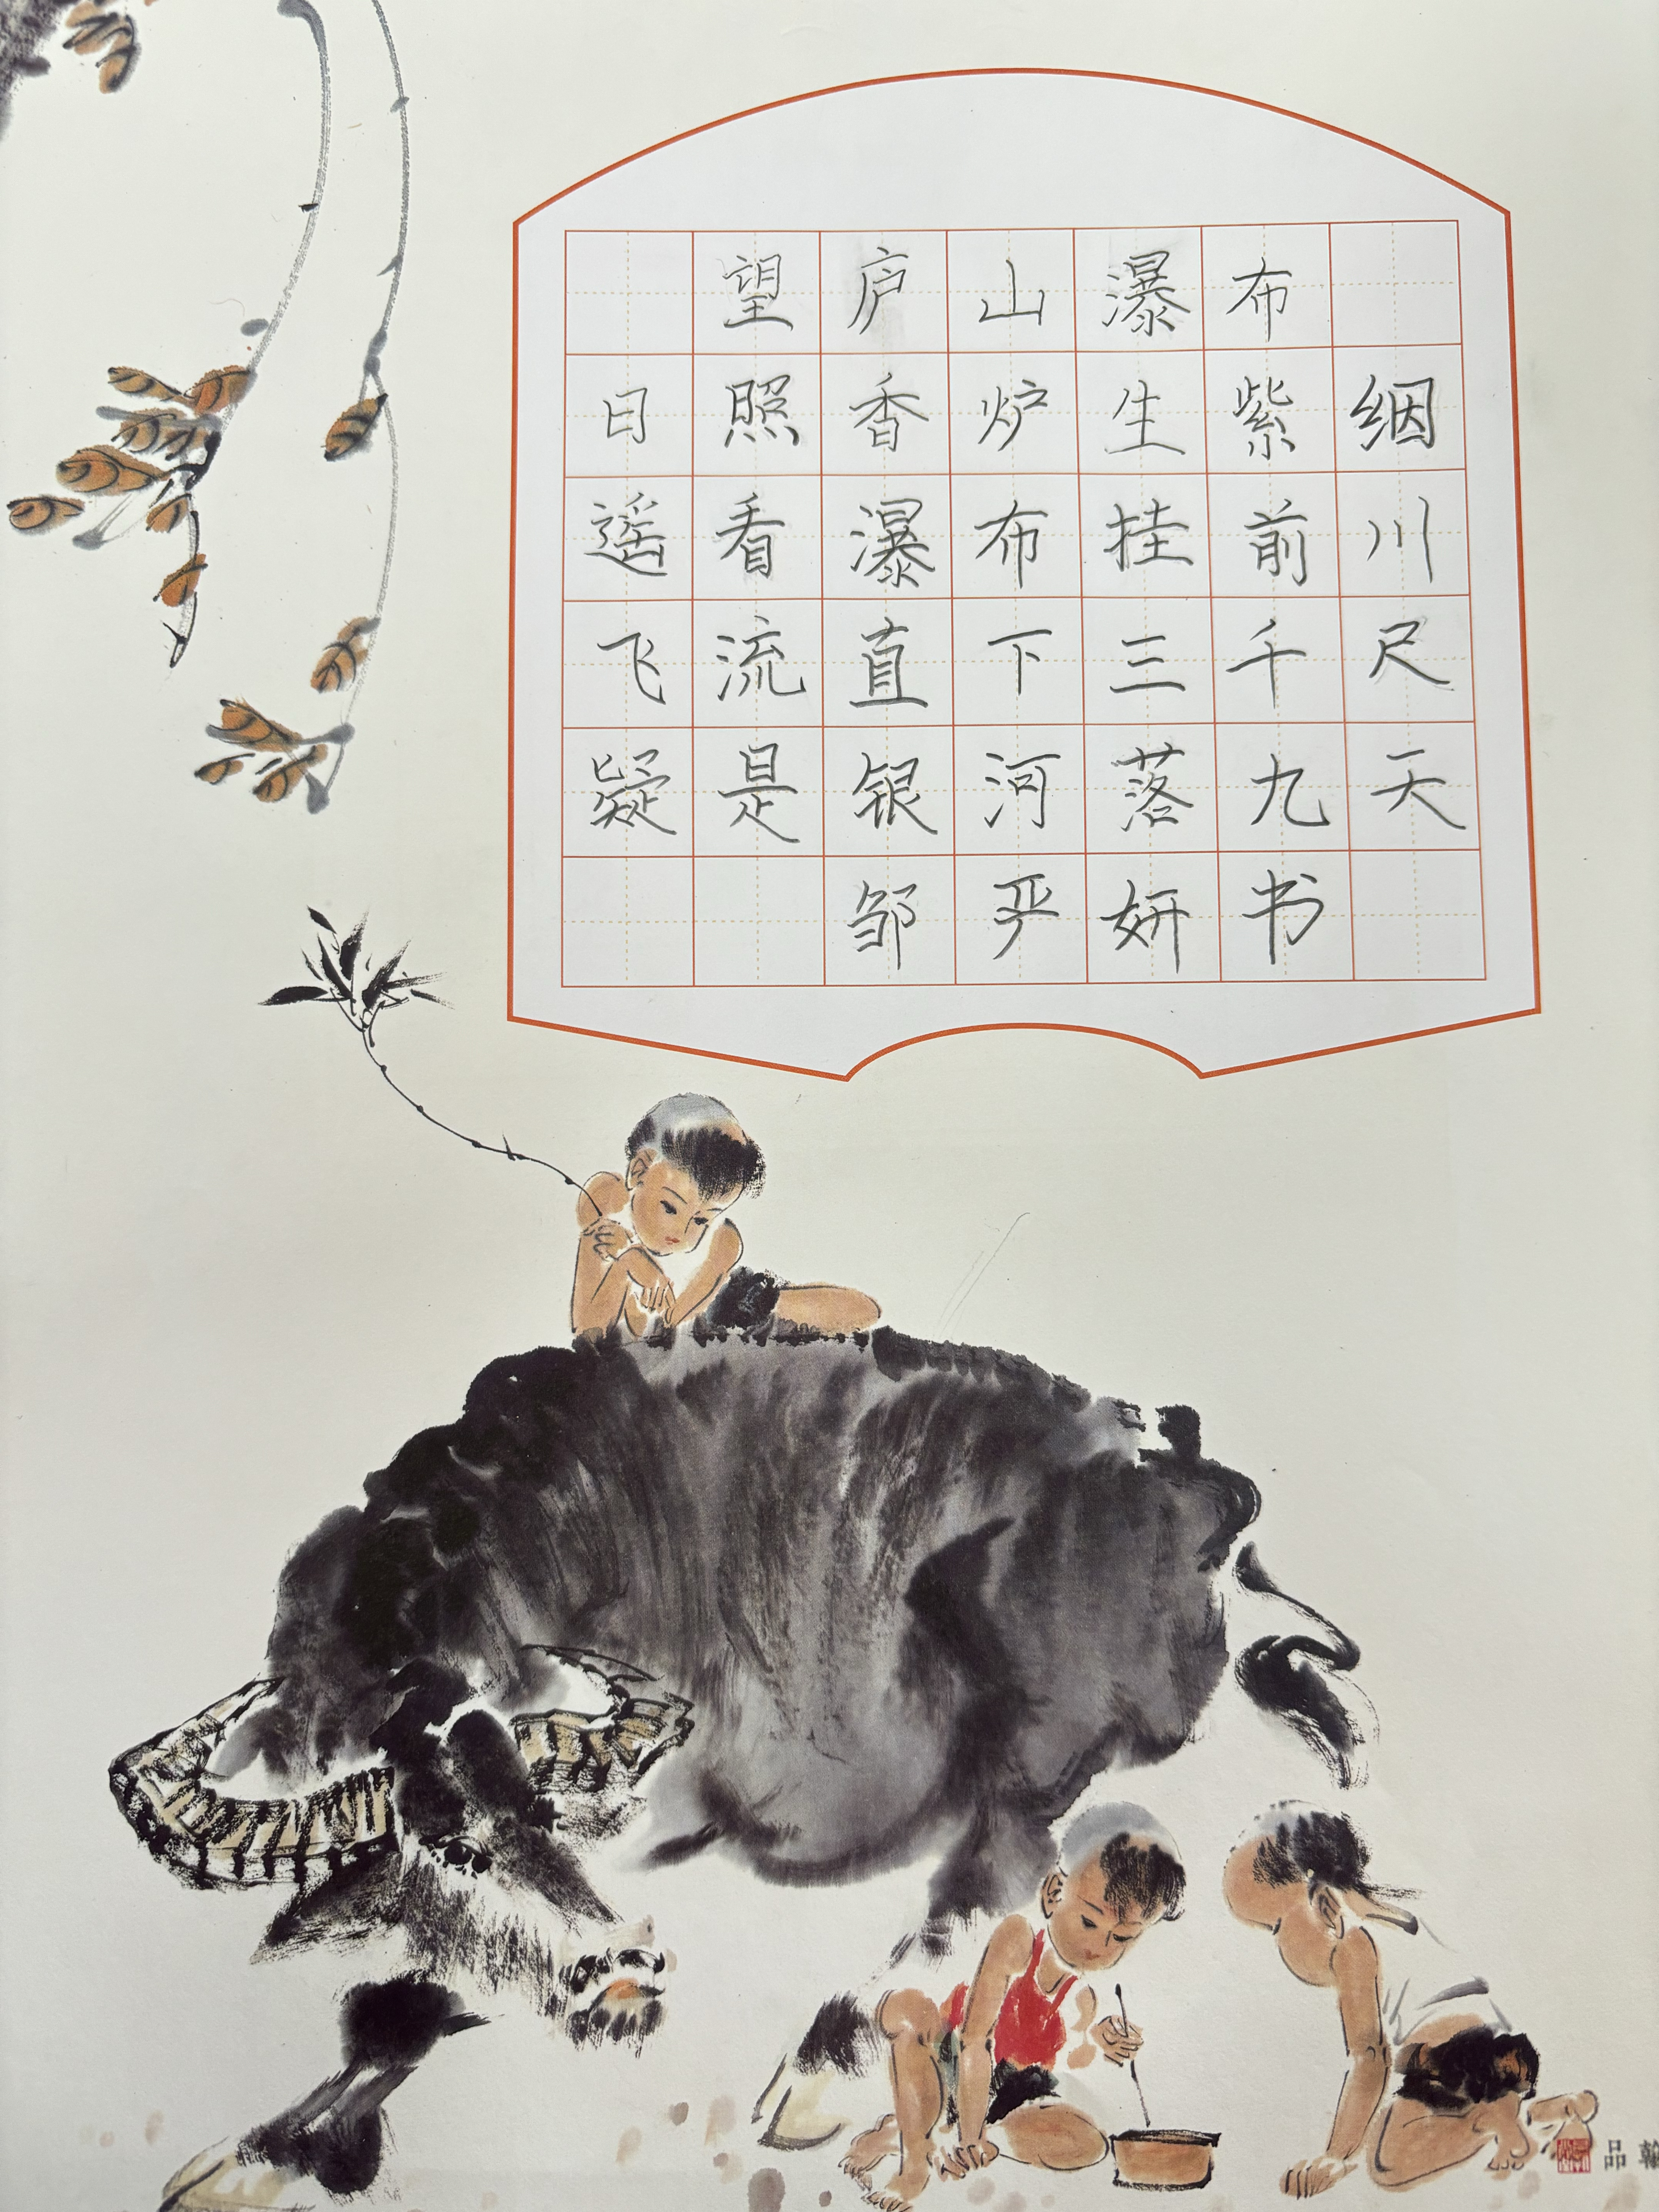 望庐山瀑布
日照香炉生紫絪
遥看瀑布挂前川
飞流直下三千尺
疑是银河落九天
邹严妍书
品